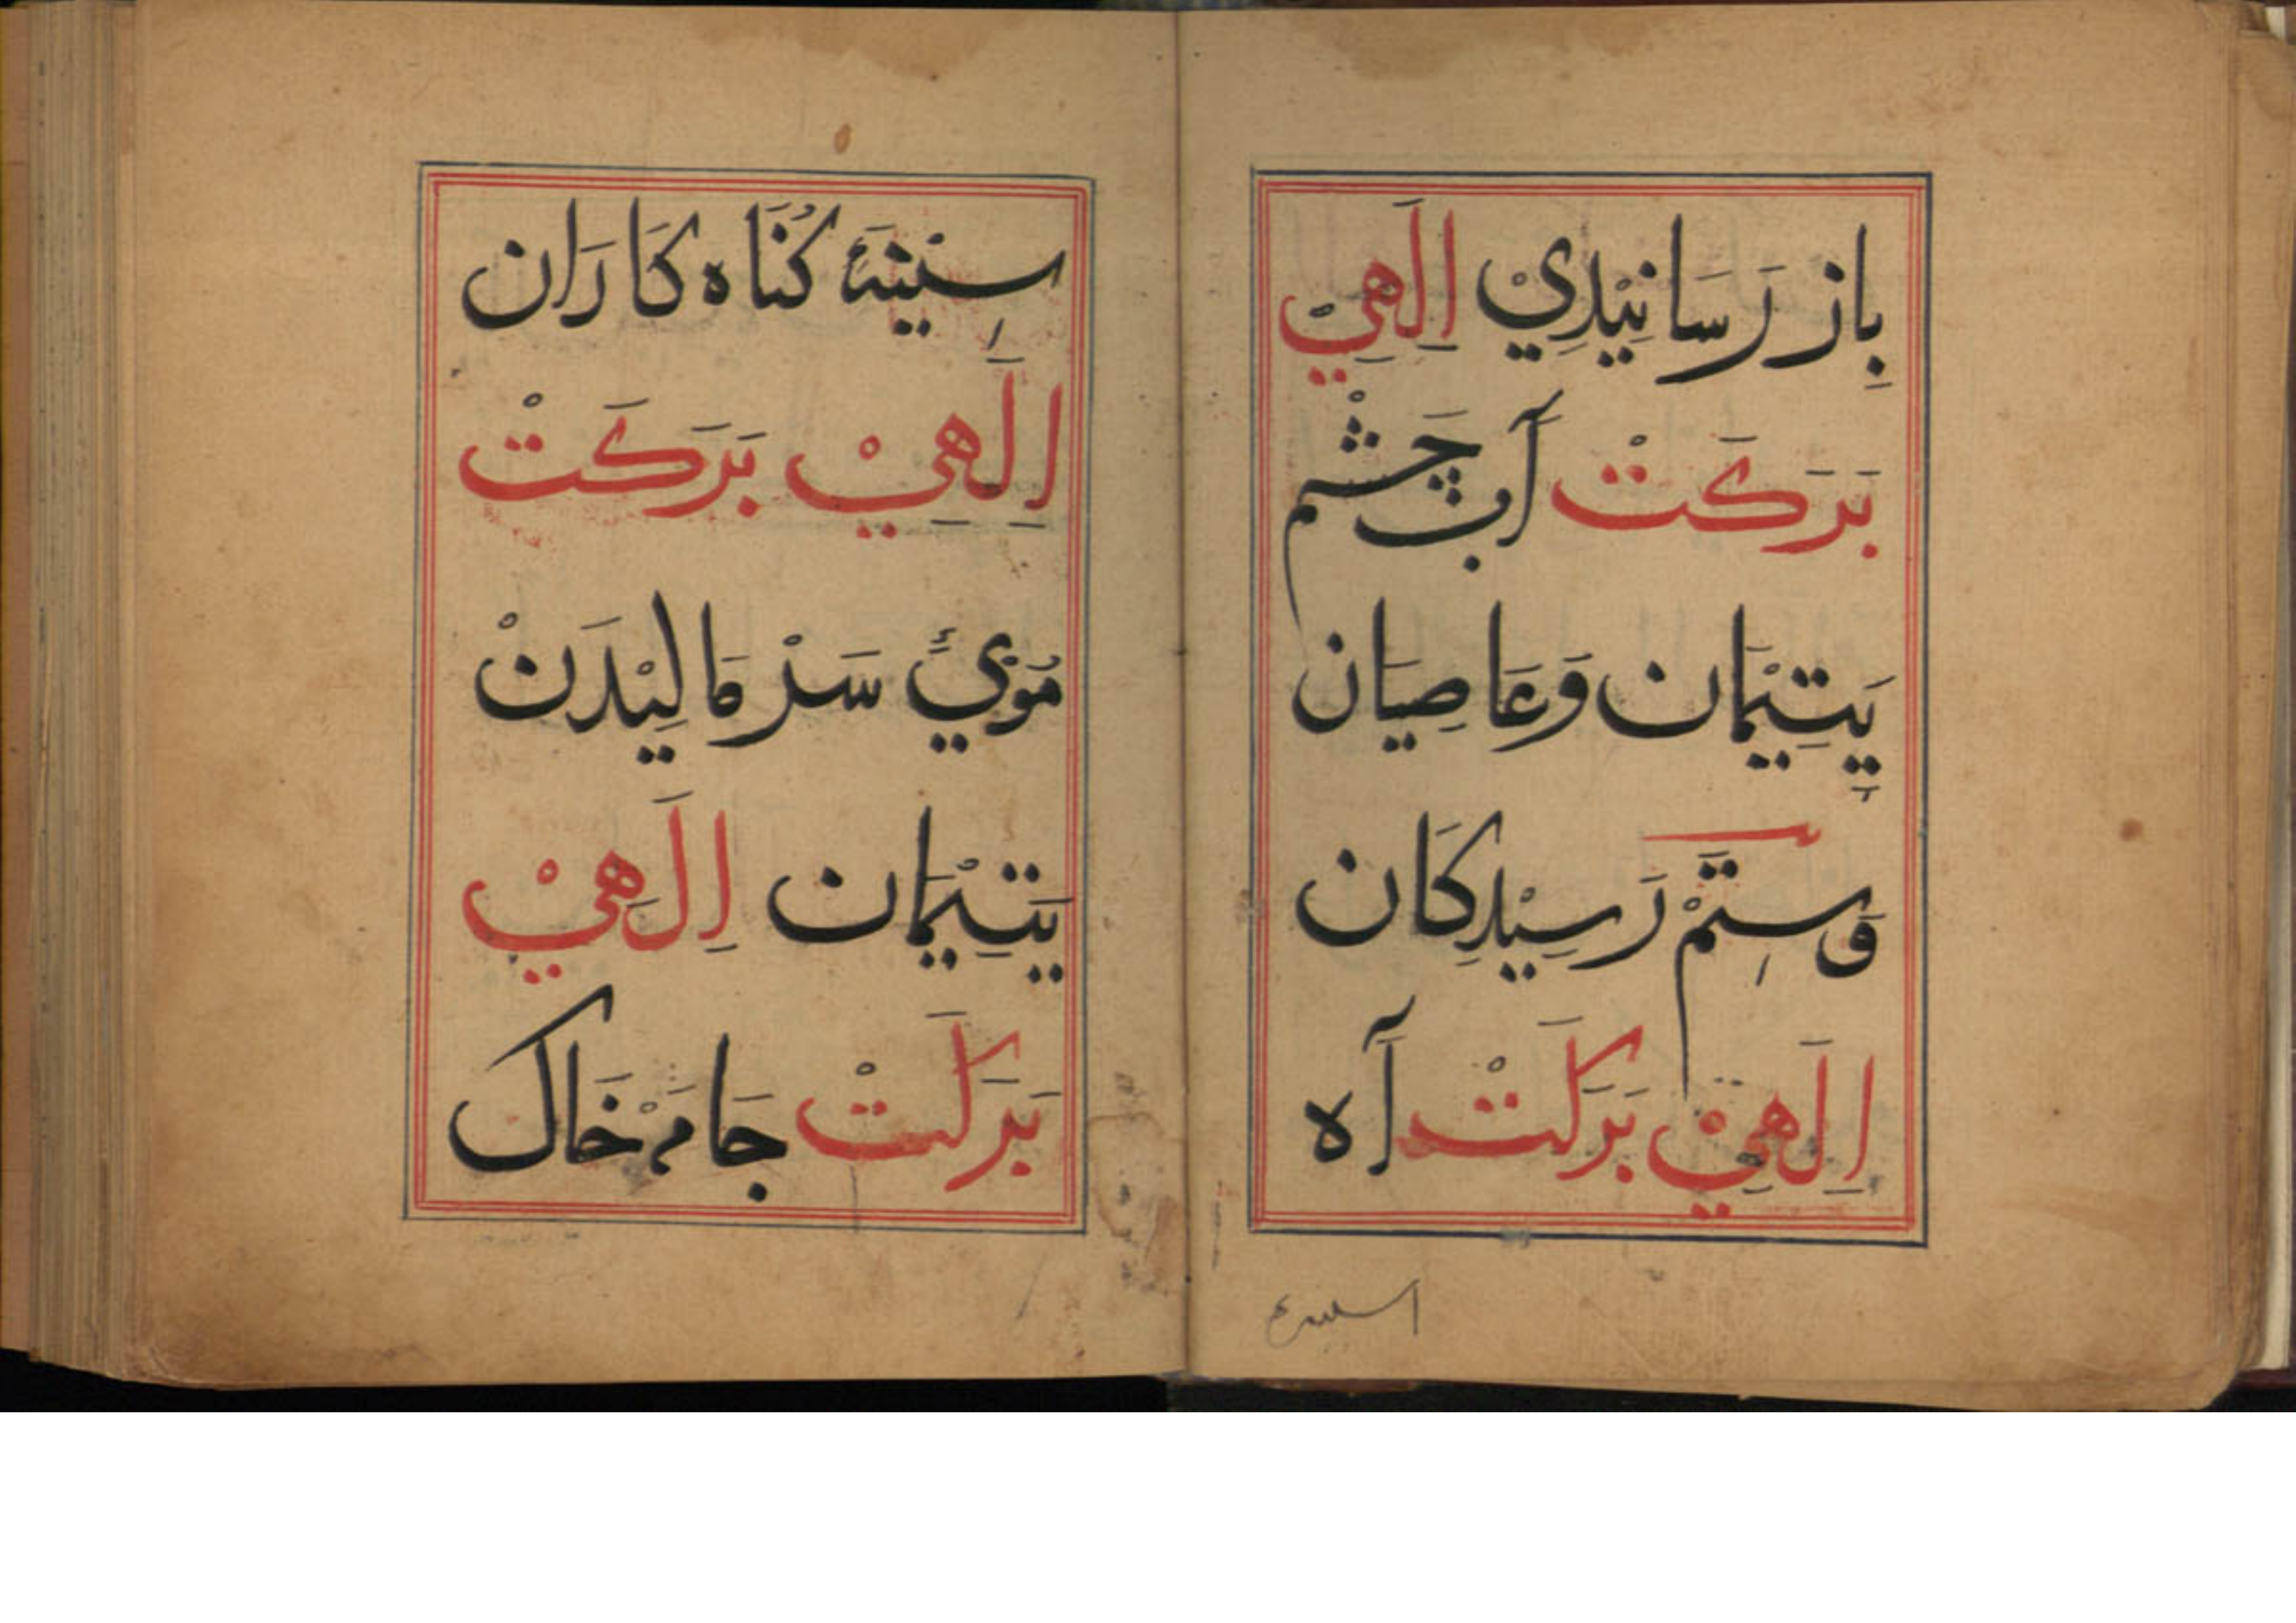 بِاز رَسَانِیْدِيْ اِلَهِيْ
بَرَكَتْ آبْ چَشْم
یَتِیْمَان وَعَاصِیَان
وَسِتَمْ رَسِیْدِكَان
اِلَهِيْ بَرَكَتْ آه
سِیْنَهٔ كُنَاه كَارَان
اِلَهِيْ بَرَكَتْ
مُوْئِ سَرْ مَالِیْدَنْ
یَتِیْمَان اِلَهِيْ
بَرَكَتْ جَامَهْ خَاك